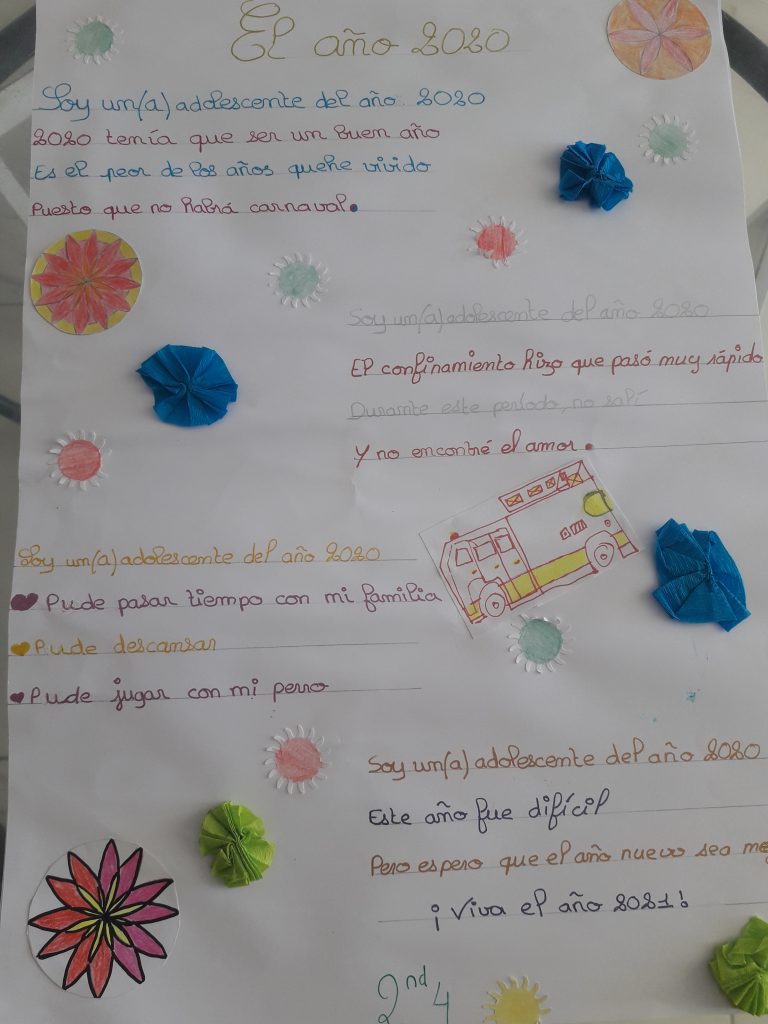 El año 2020
Soy un(a) adolescente del año 2020
2020 tenía que ser un buen año
Es el peor de los años que he vivido
Puesto que no habrá carnaval.
Soy un(a) adolescente del año 2020
El confinamiento hizo que pasó muy rápido
Durante este período, no salí
Y no encontré el amor.
Soy un(a) adolescente del año 2020
Pude pasar tiempo con mi familia
Pude descansar
Pude jugar con mi perro
Soy un(a) adolescente del año 2020
Este año fue difícil
Pero espero que el año nuevo sea me
¡Viva el año 2021!
2nd 4